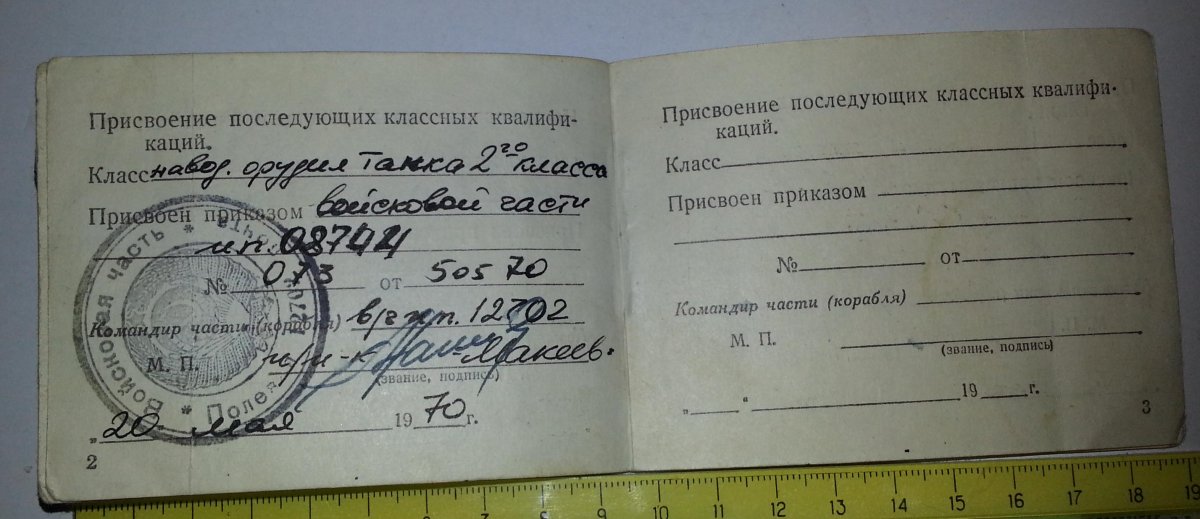 Присвоение последующих классных квалифи-
каций.
Класс навод. орудия танка 2го класса
Присвоен приказом войсковой части
п.п. 08744
№ 073 от 50570
Командир части (корабля) в/ч п.п. 12702
М. П. п/п-к Макеев.
(звание, подпись)
„20" мая 1970 г.
2
Войсковая часть * Полевая почта *
Присвоение последующих классных квалифи-
каций.
Класс
Присвоен приказом
№ от
Командир части (корабля)
М. П.
(звание, подпись)
„ “ 19 г.
3
2 3 7 8 9 10 11 12 13 14 15 16 17 18 19